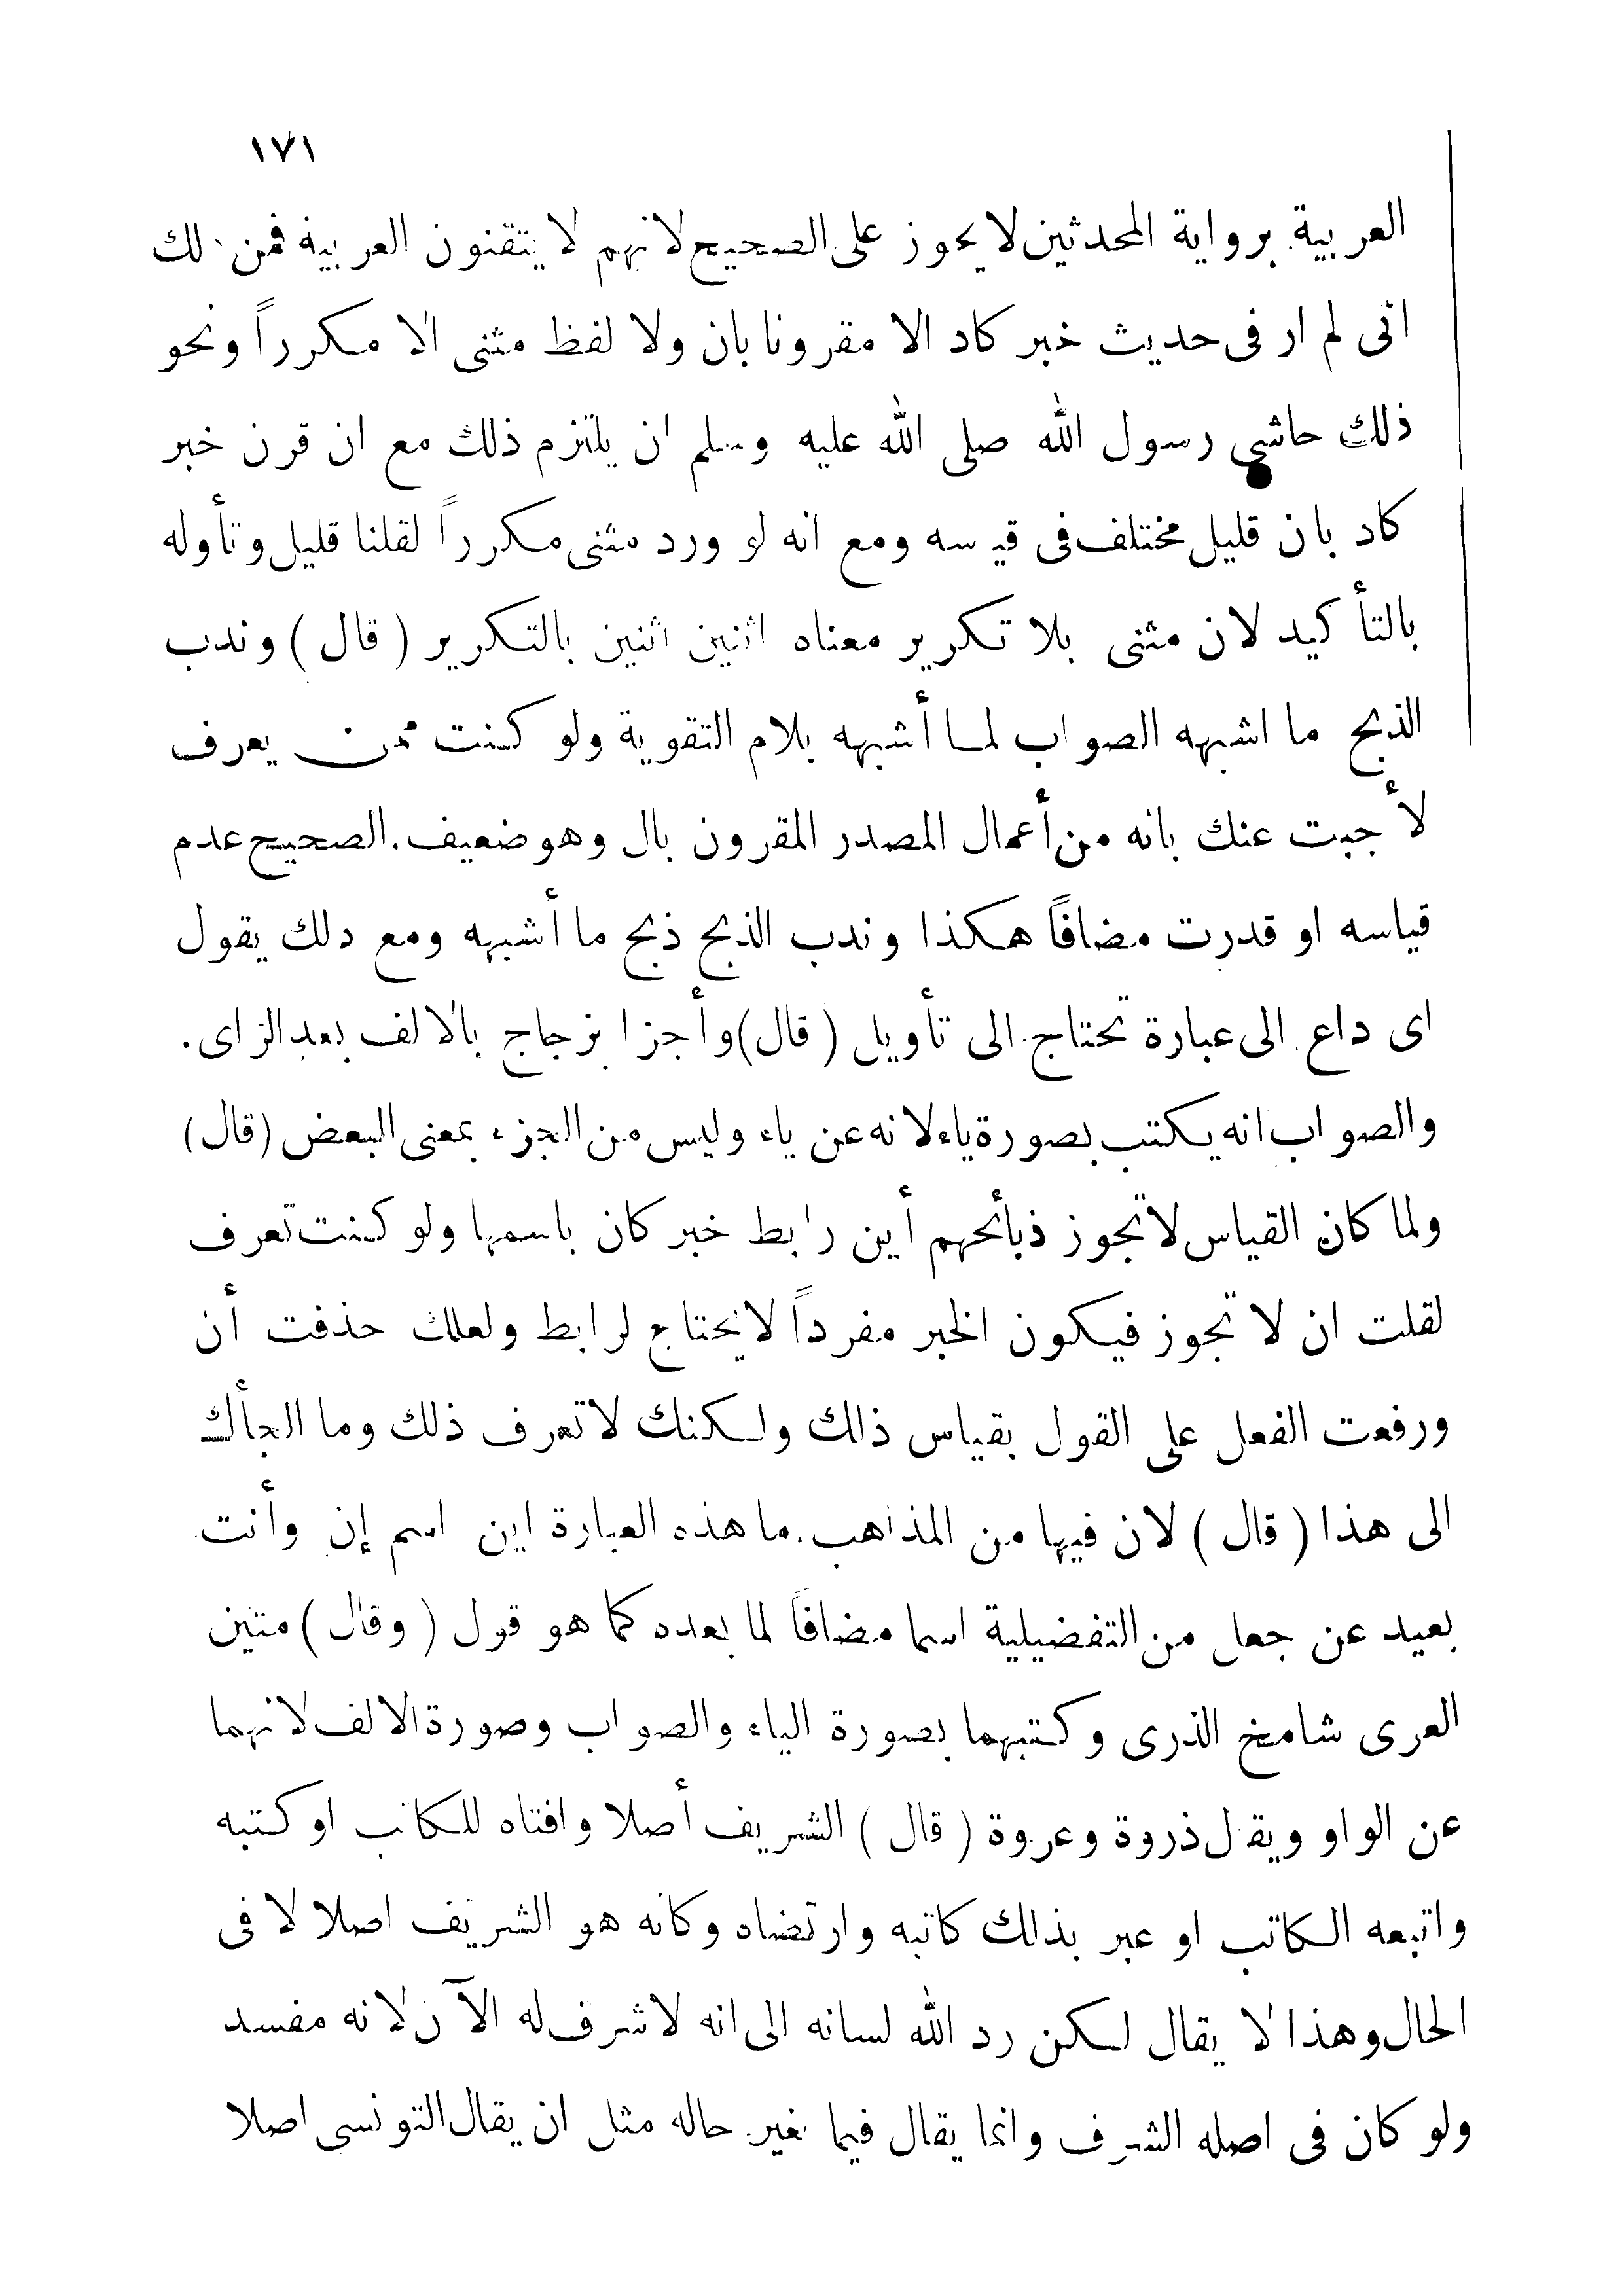 ١٧١
العربية برواية المحدثين لا يجوز على الصحيح لانهم لا يتقنون العربية فمن ذلك
انى لم ار فى حديث خبر كاد الا مقرونا بان ولا لفظ مثنى الا مكرراً ونحو
ذلك حاشى رسول الله صلى الله عليه وسلم ان يلتزم ذلك مع ان قرن خبر
كاد بان قليل مختلف فى قيسه ومع انه لو ورد مثنى مكرراً لقلنا قليل وتأوله
بالتأكيد لان مثنى بلا تكرير معناه اثنين اثنين بالتكرير ( قال ) وندب
الذبح ما اشبهه الصواب لما أشبهه بلام التقوية ولو كنت ممن يعرف
لأجبت عنك بانه من أعمال المصدر المقرون بال وهو ضعيف . الصحيح عدم
قياسه او قدرت مضافاً هكذا وندب الذبح ذبح ما أشبهه ومع دلك يقول
اى داع الى عبارة تحتاج الى تأويل ( قال ) وأجزا بزجاج بالالف بعد الزاى .
والصواب انه يكتب بصورة ياء لانه عن ياء وليس من الجزء بمعنى البعض ( قال )
ولما كان القياس لا تجوز ذبأئحهم أين رابط خبر كان باسمها ولو كنت تعرف
لقلت ان لا تجوز فيكون الخبر مفرداً لا يحتاج لرابط ولعلك حذفت أن
ورفعت الفعل على القول بقياس ذالك ولكنك لا تعرف ذلك وما الجأك
الى هذا ( قال ) لان فيها من المذاهب . ما هذه العبارة اين اسم إن وأنت
بعيد عن جعل من التفضيلية اسما مضافاً لما بعده كما هو قول ( وقال ) متين
العرى شامخ الذرى وكتبهما بصورة الياء والصواب وصورة الالف لانهما
عن الواو ويقل ذروة وعروة ( قال ) الشريف أصلا وافتاه للكاتب او كتبه
واتبعه الكاتب او عبر بذلك كاتبه وارتضاه وكانه هو الشريف اصلا لا فى
الحال وهذا لا يقال لكن رد الله لسانه الى انه لا شرف له الآن لانه مفسد
ولو كان فى اصله الشرف وانما يقال فيما تغير حاله مثل ان يقال التونسى اصلا